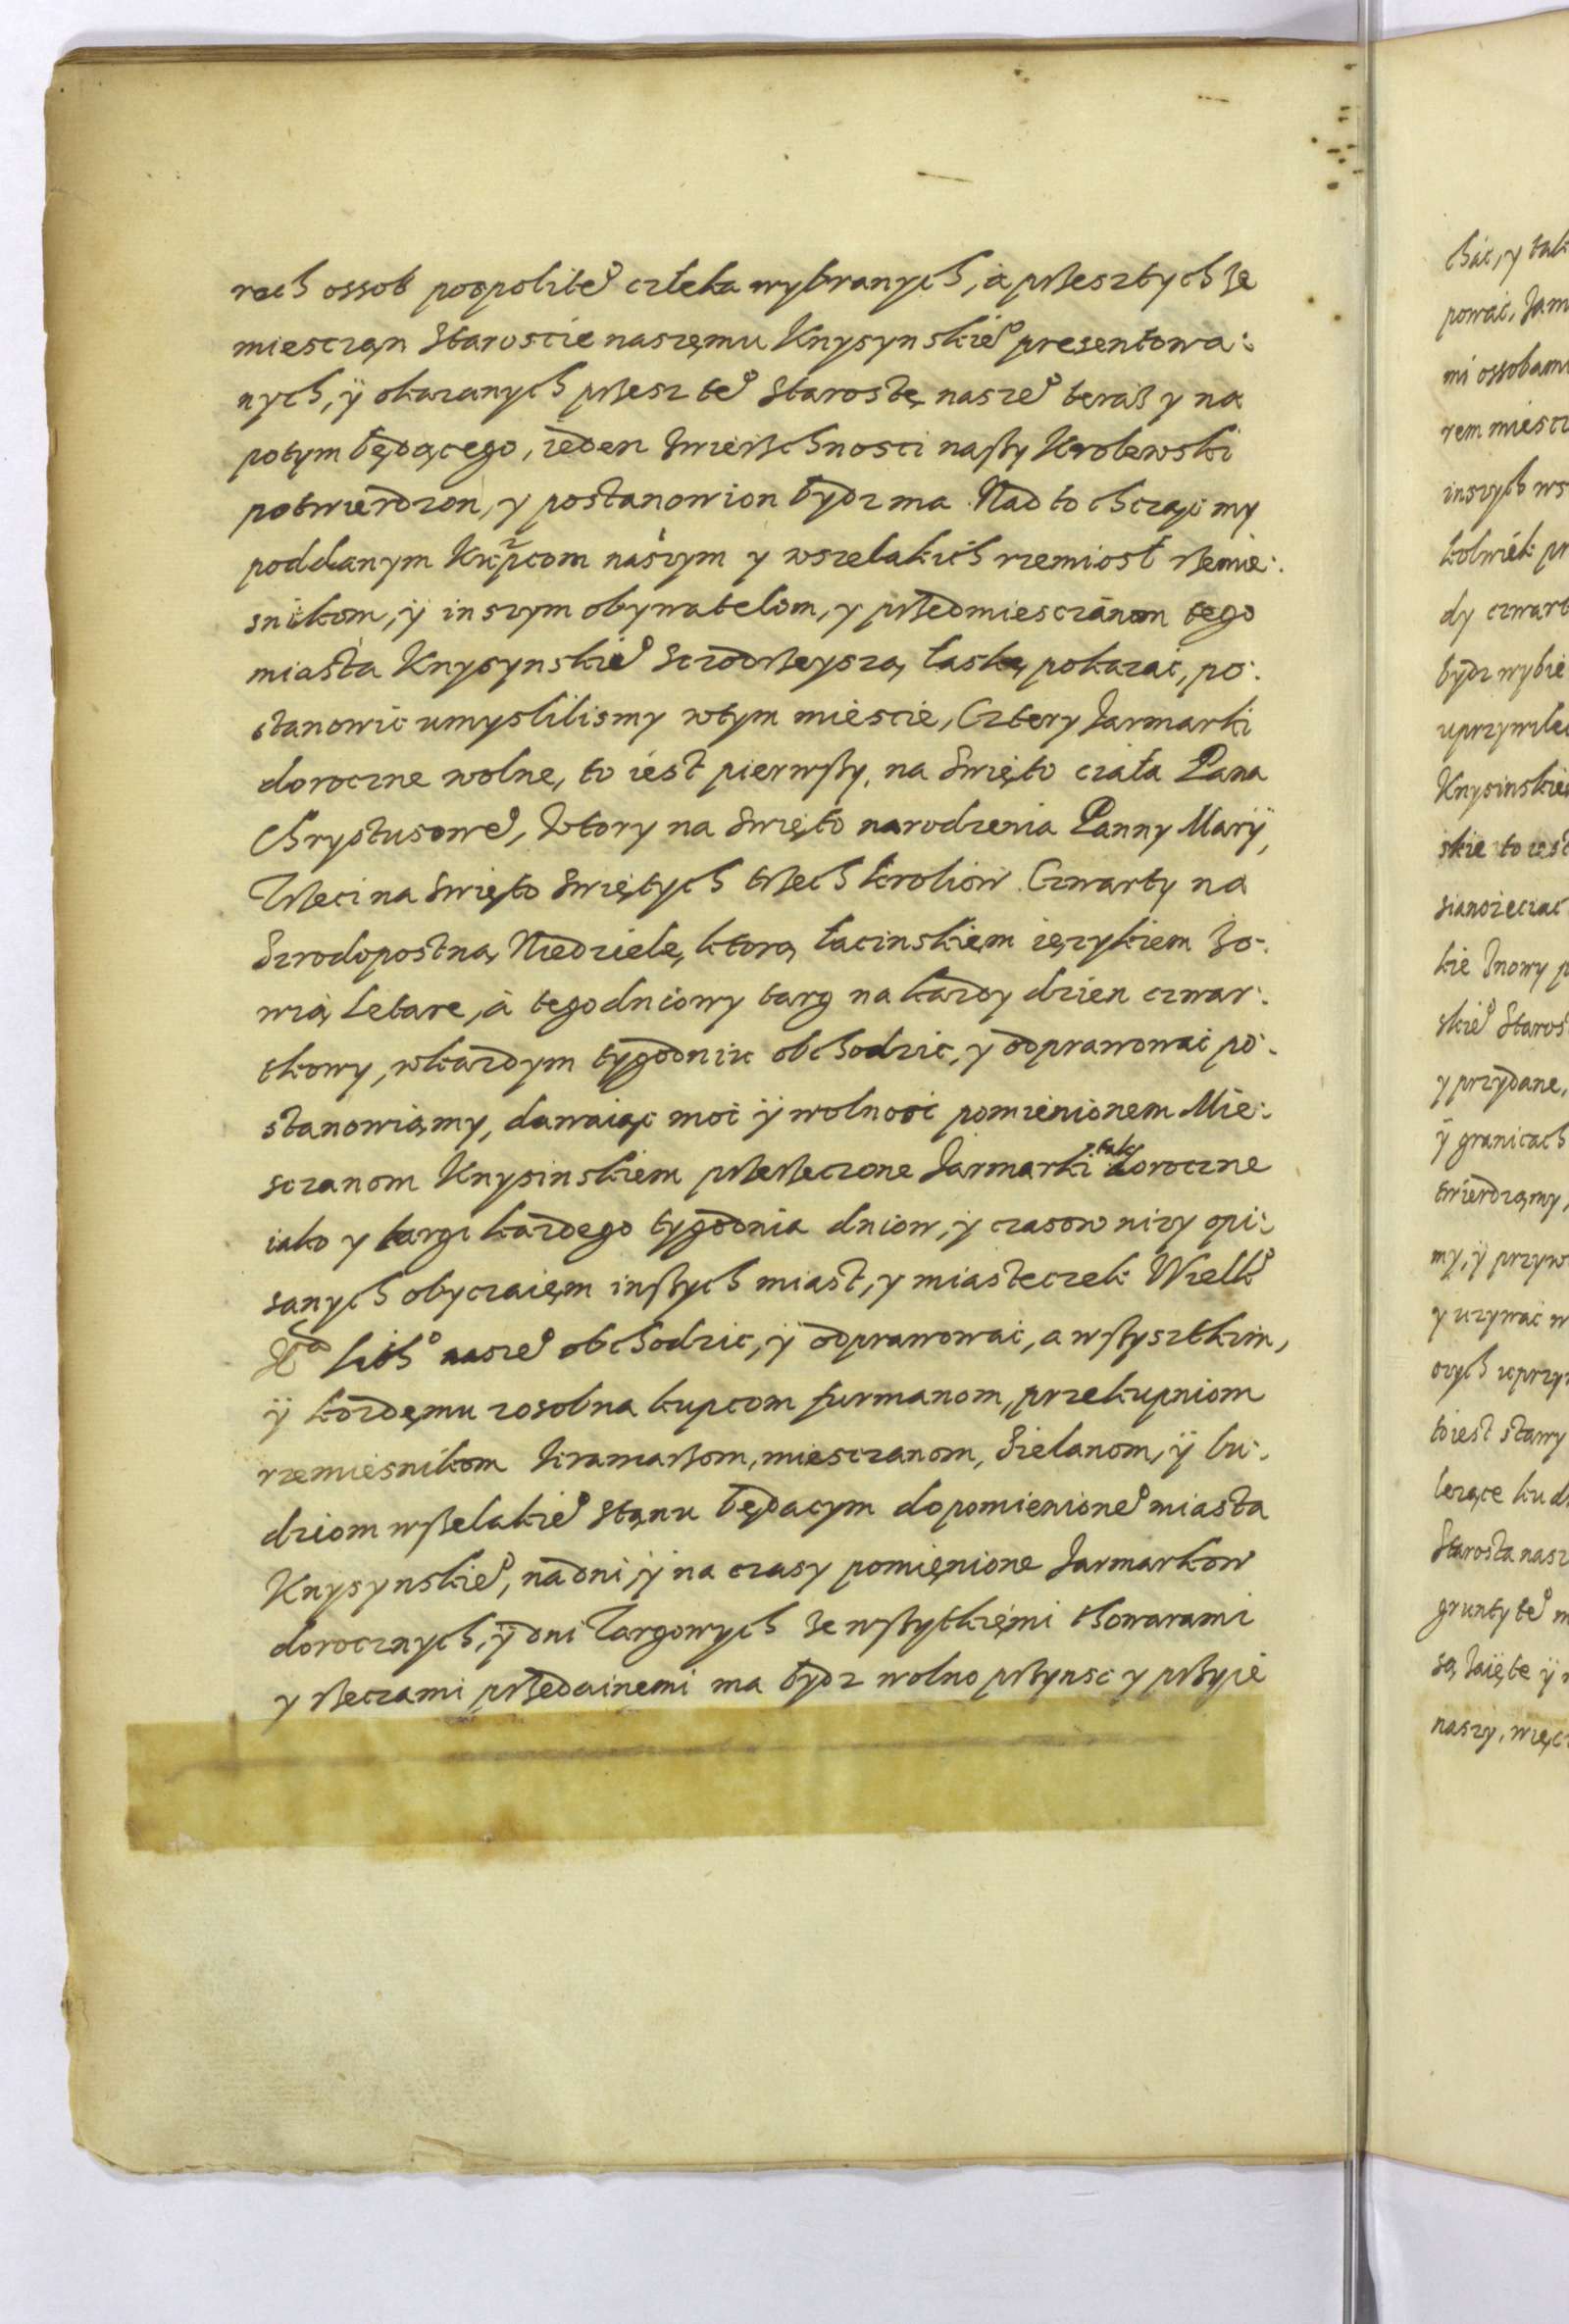 rech ossob pospolite° człeka wybranych, á przesztych ze
miesczan Staroscie naszęmu Knysynskie° presentowa:
nych, ÿ okazanych przesz te° Starostę nasze° teraz y na
potym będącego, ieden zwierzchnosci naszy Krolewski
potwierdzon, y postanowion bydz ma. Nad to chcząc my
poddanym Kupcom naszym y wszelakich rzemiosł rzemie:
snikom, ÿ inszym obywatelom, y przedmiesczánom tego
miasta Knysynskie° sczodrzeyszą łaskę pokazać, po:
stanowić umyslilismy wtym miescie, Cztery Jarmarki
doroczne wolne, to iest pierwszy, na Swięto ciała Pana
Chrystusowe°, wtory na Swięto narodzenia Panny Marÿ,
Trzeci na Swięto Swiętych trzech kroliow. Czwarty na
Szrodopostną Niedzielę, ktorą łacinskięm ięzykiem zo:
wią Letare, á tegodniowy targ na kazdy dzien czwar:
tkowy, wkazdym tygodniu obchodzic, y odprawowac po:
stanowiamy, dawaiąc moc ÿ wolnosc pomienionem Mie:
sczanom Knysinskiem przerzeczone Jarmarki tak doroczne
iako y targi kazdego tygodnia dniow, y czasow nizy opi:
sanych obyczaięm inszych miast, y miasteczek Wielk°
Xa Lith° nasze° obchodzic, ÿ odprawowac, a wszysztkim,
ÿ kozdęmu zosobna kupcom furmanom, przekupniom
rzemiesnikom kramarzom, miesczanom, Sielanom, ÿ lu:
dziom wszelakie° stanu będacym do pomienione° miasta
Knysynskie°, nadni, ÿ na czasy pomięnione Jarmarkow
dorocznych, ÿ dni Targowych ze wszytkięmi thowarami
y rzeczami przedainemi ma bydz wolno przynsc y przyie